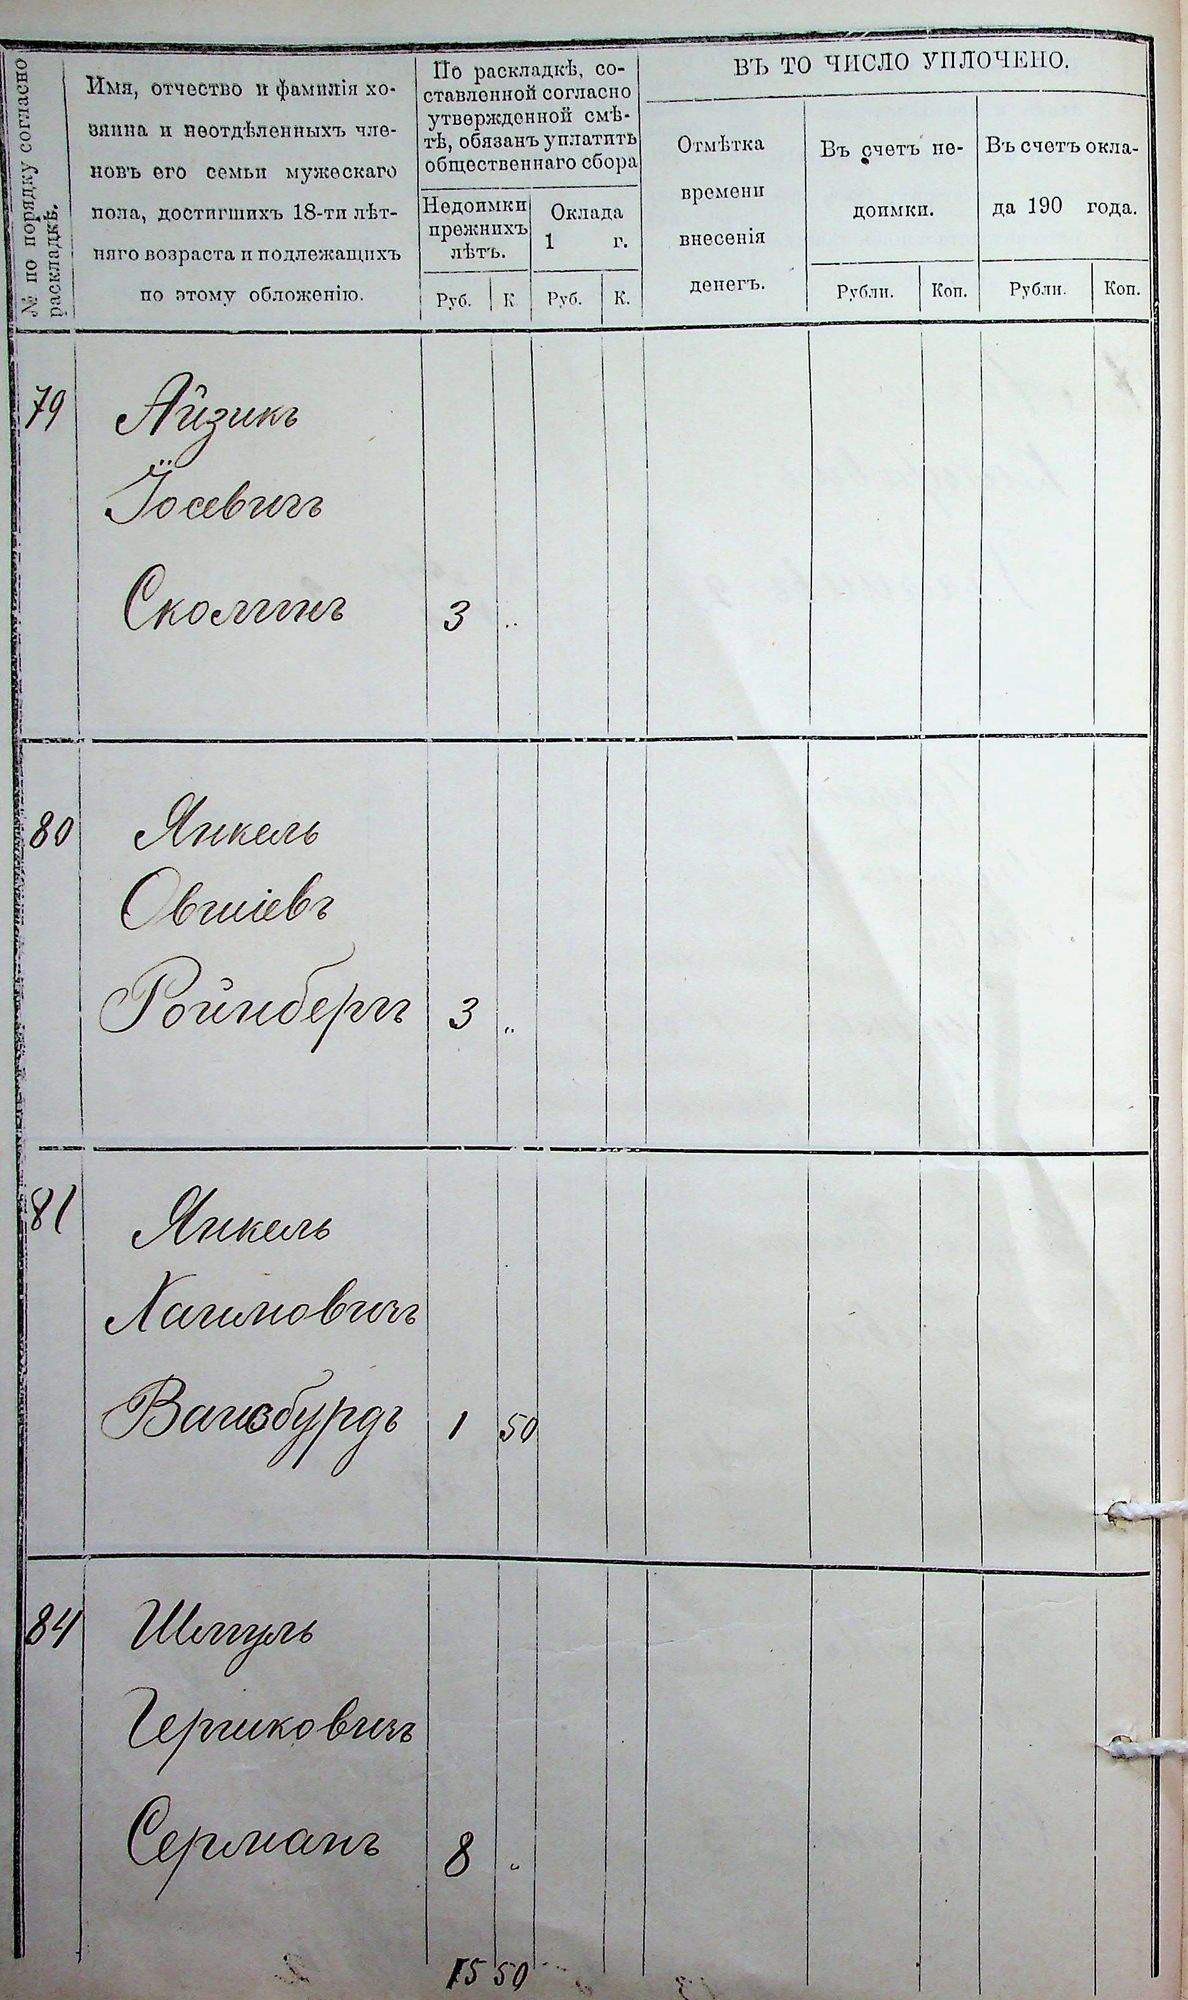 № по порядку согласно
раскладкѣ.
Имя, отчество и фамилія хо-
зяина и неотдѣленныхъ чле-
новъ его семьи мужескаго
пола, достигшихъ 18-ти лѣт-
няго возраста и подлежащихъ
по этому обложенію.
По раскладкѣ, со-
ставленной согласно
утвержденной смѣ-
тѣ, обязанъ уплатить
общественнаго сбора
Недоимки
прежнихъ
лѣтъ.
Оклада
1 г.
Руб. К Руб. К.
ВЪ ТО ЧИСЛО УПЛОЧЕНО.
Отмѣтка
времени
внесенія
денегъ.
Въ счетъ не-
доимки.
Въ счетъ окла-
да 190 года.
Рубли. Коп. Рубли. Коп.
79 Айзикъ
Іосевичъ
Сколникъ 3 "
80 Янкель
Овшіевъ
Ройнбергъ 3 "
81 Янкель
Хаимовичъ
Вансбурдъ 1 50
84 Шмуль
Гершковичъ
Серманъ 8 "
15 50